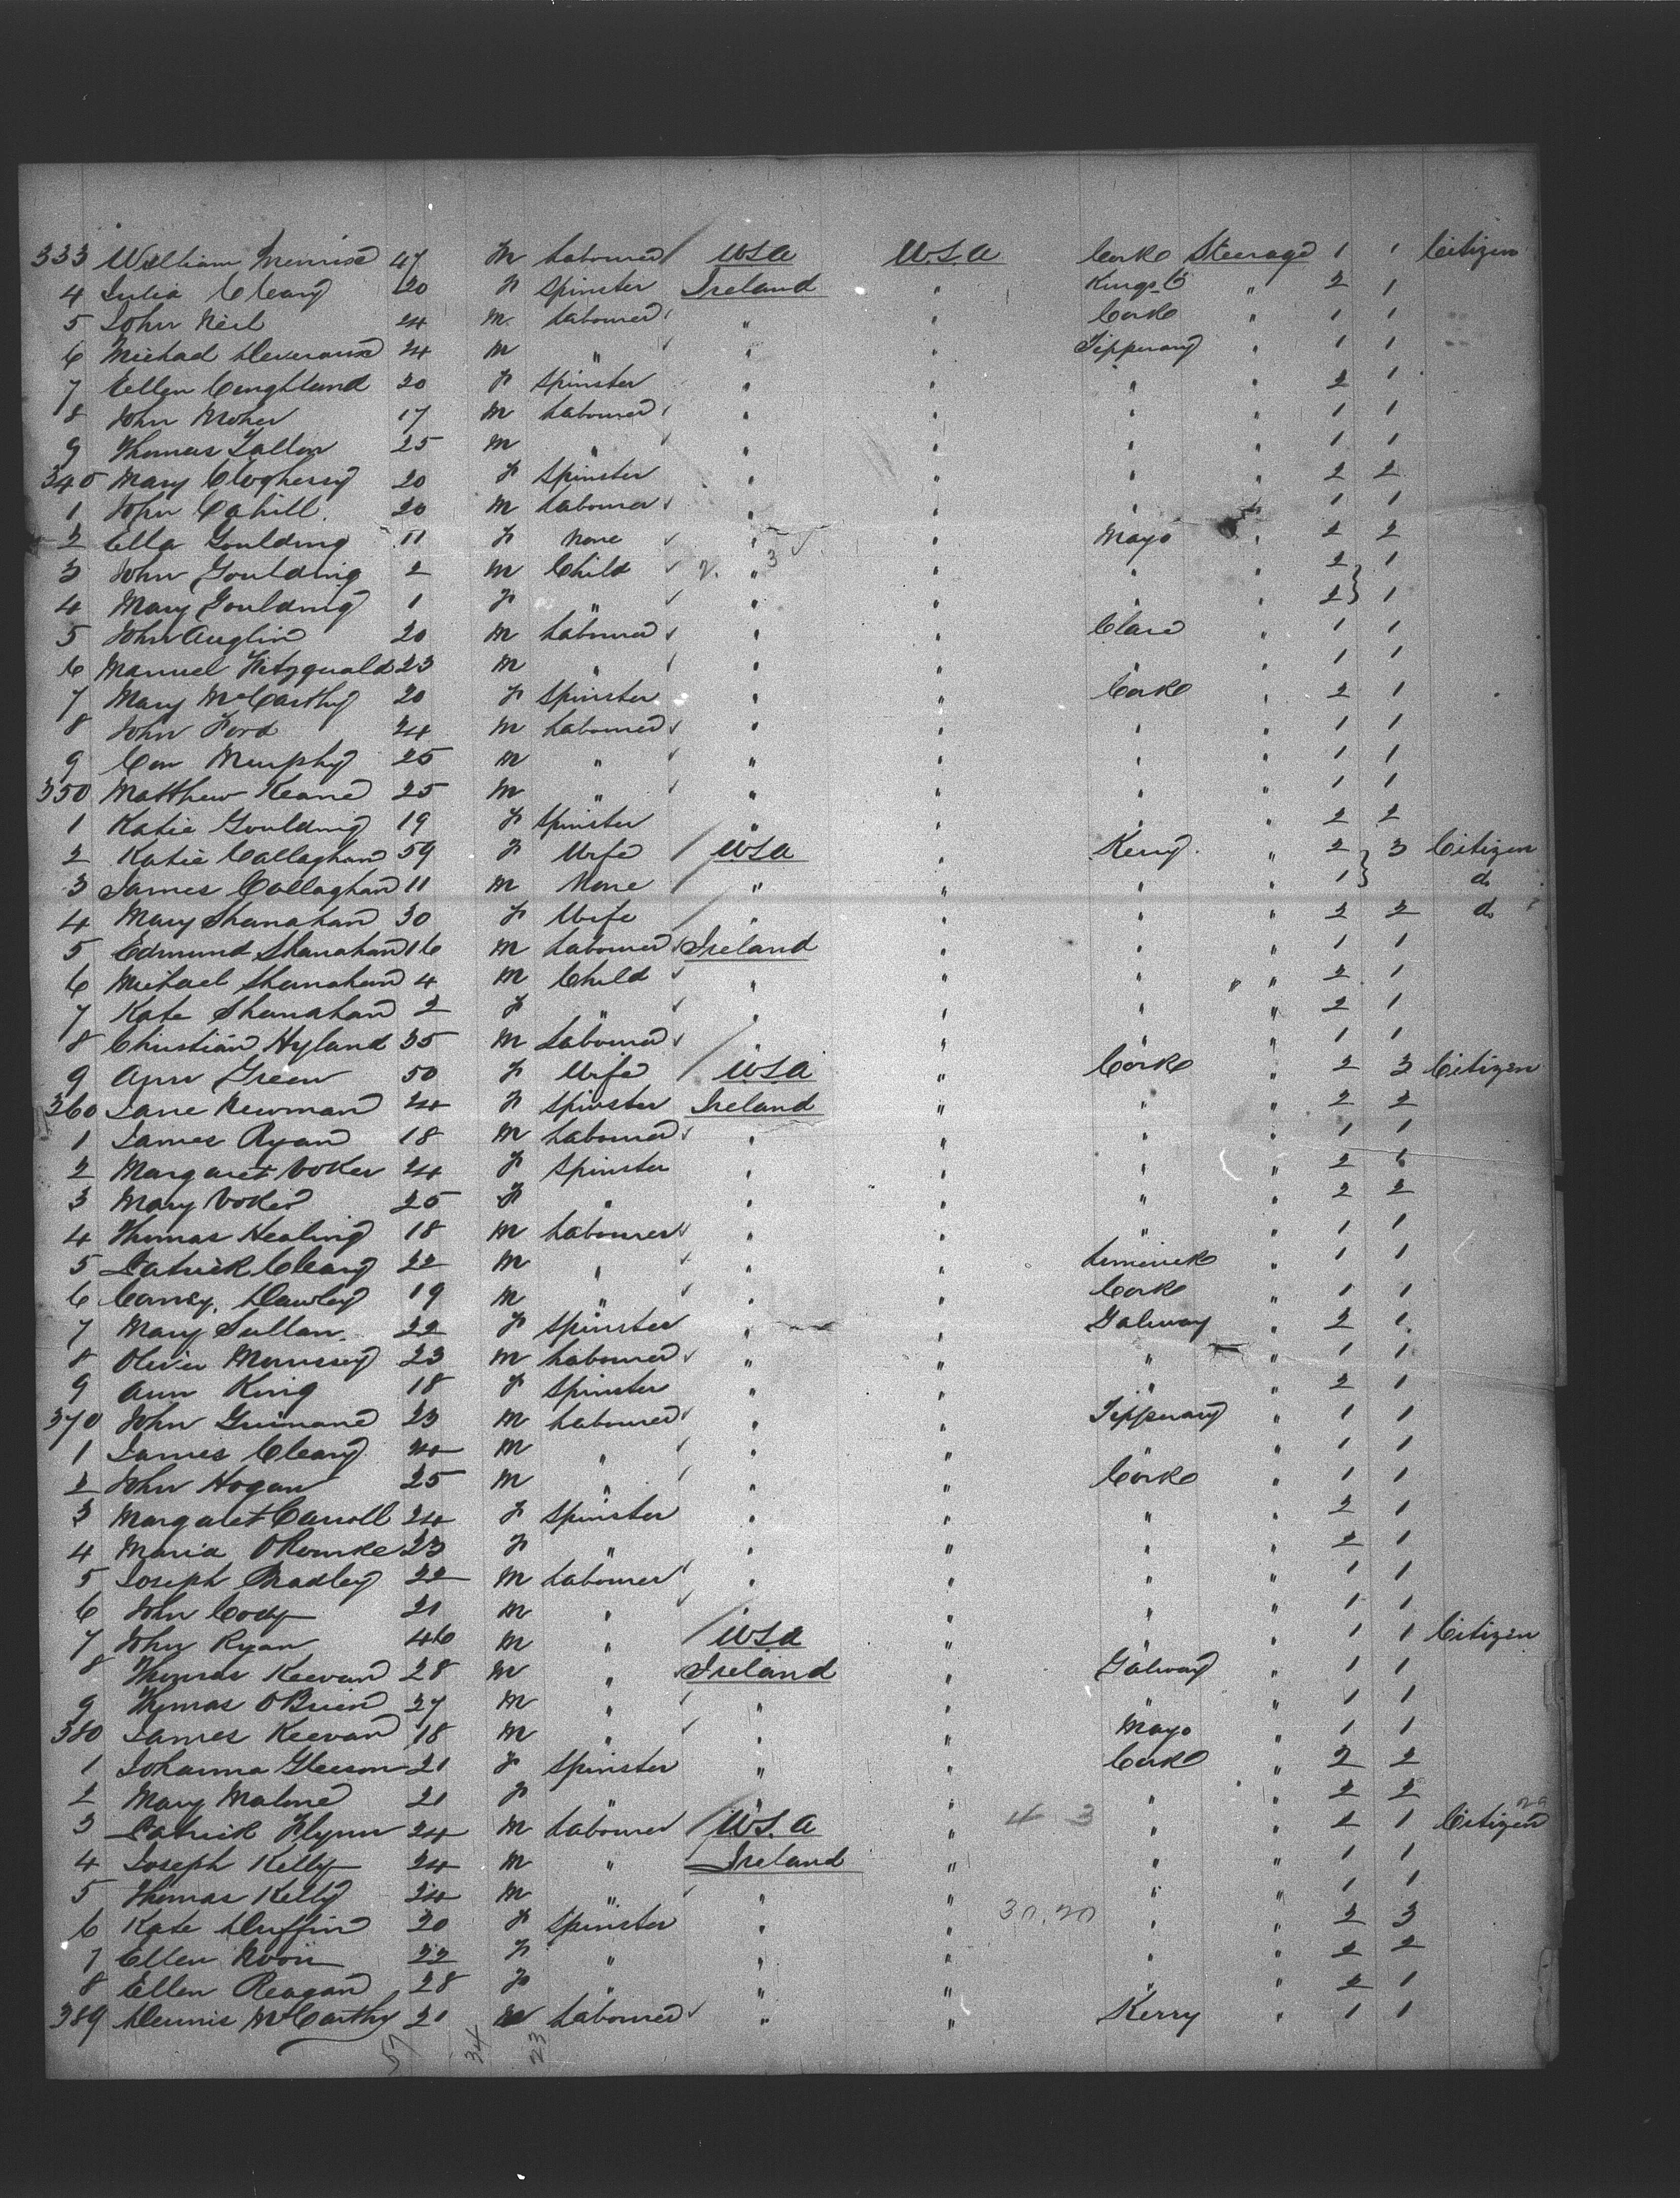 333 William 47 m Labourer / USA U.S.A Cork Steerage 1 1 Citizen
4 Julia Cleary 20 F Spinster Ireland " Kings Co " 2 1
5 John Neil 24 m Labourer " " Cork " 1 1
6 Michael Devereaux 24 m " " " Tipperary " 1 1
7 Ellen Coughland 20 F Spinster " " " " 2 1
8 John Moher 17 m Labourer " " " " 1 1
9 Thomas 25 m " " " " " 1 1
340 Mary Cloghessy 20 F Spinster " " " " 2 2
1 John Cahill 20 m Labourer " " " " 1 1
2 Ella Goulding 11 F None " " Mayo " 2 2
3 John Goulding 2 m Child 2. " 3 " " " 2 1
4 Mary Goulding 1 F " " " " " 2 1
5 John Anglin 20 m Labourer " " Clare " 1 1
6 Manuel Fitzgerald 23 m " " " " " 1 1
7 Mary McCarthy 20 F Spinster " " Cork " 2 1
8 John Ford 24 m Labourer " " " " 1 1
9 Con Murphy 25 m " " " " " 1 1
350 Matthew Keane 25 m " " " " " 1 1
1 Katie Goulding 19 F Spinster " " " " 2 2
2 Katie Callaghan 59 F Wife / USA " Kerry " 2 3 Citizen
3 James Callaghan 11 m None / " " " " 1 do
4 Mary Shanahan 30 F Wife / " " " " 2 2 do
5 Edmund Shanahan 16 m Labourer Ireland " " " 1 1
6 Michael Shanahan 4 m Child " " " " 2 1
7 Kate Shanahan 2 F " " " " " 2 1
8 Christian Hyland 35 m Labourer " " " " 1 1
9 Ann Green 50 F Wife / USA " Cork " 2 3 Citizen
360 Jane Newman 24 F Spinster Ireland " " " 2 2
1 James Ryan 18 m Labourer " " " " 1 1
2 Margaret Voker 24 F Spinster " " " " 2 1
3 Mary Voker 25 F " " " " " 2 2
4 Thomas Healing 18 m Labourer " " " " 1 1
5 Patrick Cleary 22 m " " " Limerick " 1 1
6 Dawley 19 m " " " Cork " 1 1
7 Mary Sullan 22 F Spinster " " Galway " 2 1
8 Oliver Morrissey 23 m Labourer " " " " 1 1
9 Ann King 18 F Spinster " " " " 2 1
370 John 23 m Labourer " " Tipperary " 1 1
1 James Cleary 24 m " " " " " 1 1
2 John Hogan 25 m " " " Cork " 1 1
3 Margaret Carroll 24 F Spinster " " " " 2 1
4 Maria ORourke 23 F " " " " " 2 1
5 Joseph Bradley 22 m Labourer " " " " 1 1
6 John Cody 21 m " " " " " 1 1
7 John Ryan 46 m " / USA " " " 1 1 Citizen
8 Thomas Keevan 28 m " Ireland " Galway " 1 1
9 Thomas OBrien 27 m " " " " " 1 1
380 James Keevan 18 m " " " Mayo " 1 1
1 Johanna Gleeson 21 F Spinster " " Cork " 2 2
2 Mary Malone 21 F " " " " " 2 2
3 Patrick Flynn 24 m Labourer / U.S.A " 4 3 " " 2 1 Citizen
4 Joseph Kelly 24 m " Ireland " " " 1 1
5 Thomas Kelly 24 m " " " " " 1 1
6 Kate Duffin 20 F Spinster " " 30.20 " " 2 3
7 Ellen 22 F " " " " " 2 2
8 Ellen Reagan 28 F " " " " " 2 1
389 Dennis McCarthy 21 m Labourer " " Kerry " 1 1
57 34 23